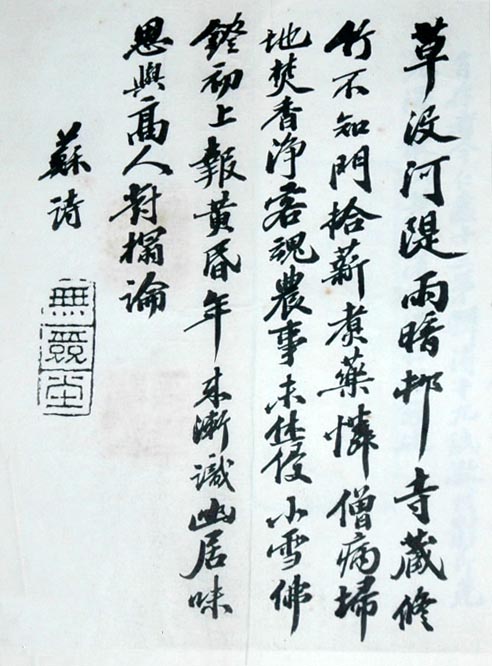 草没河隄雨暗邨寺藏脩
竹不知門拾薪煮藥憐僧病掃
地焚香淨客魂農事未休侵小雪佛
鐙初上報黃昏年來漸識幽居味
思與高人對榻論
蘇詩
無競